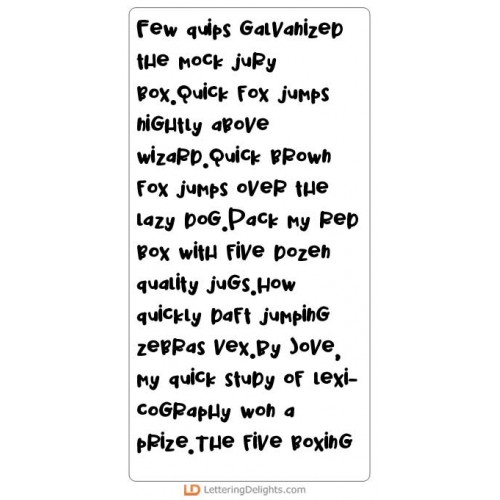 Few quips Galvanized
the mock jury
box.Quick fox jumps
nightly above
wizard.Quick brown
fox jumps over the
lazy dog.Pack my red
box with five dozen
quality jugs.How
quickly daft jumping
zebras vex.By Jove,
my quick study of lexi-
cography won a
prize.The five boxing
LD LetteringDelights.com